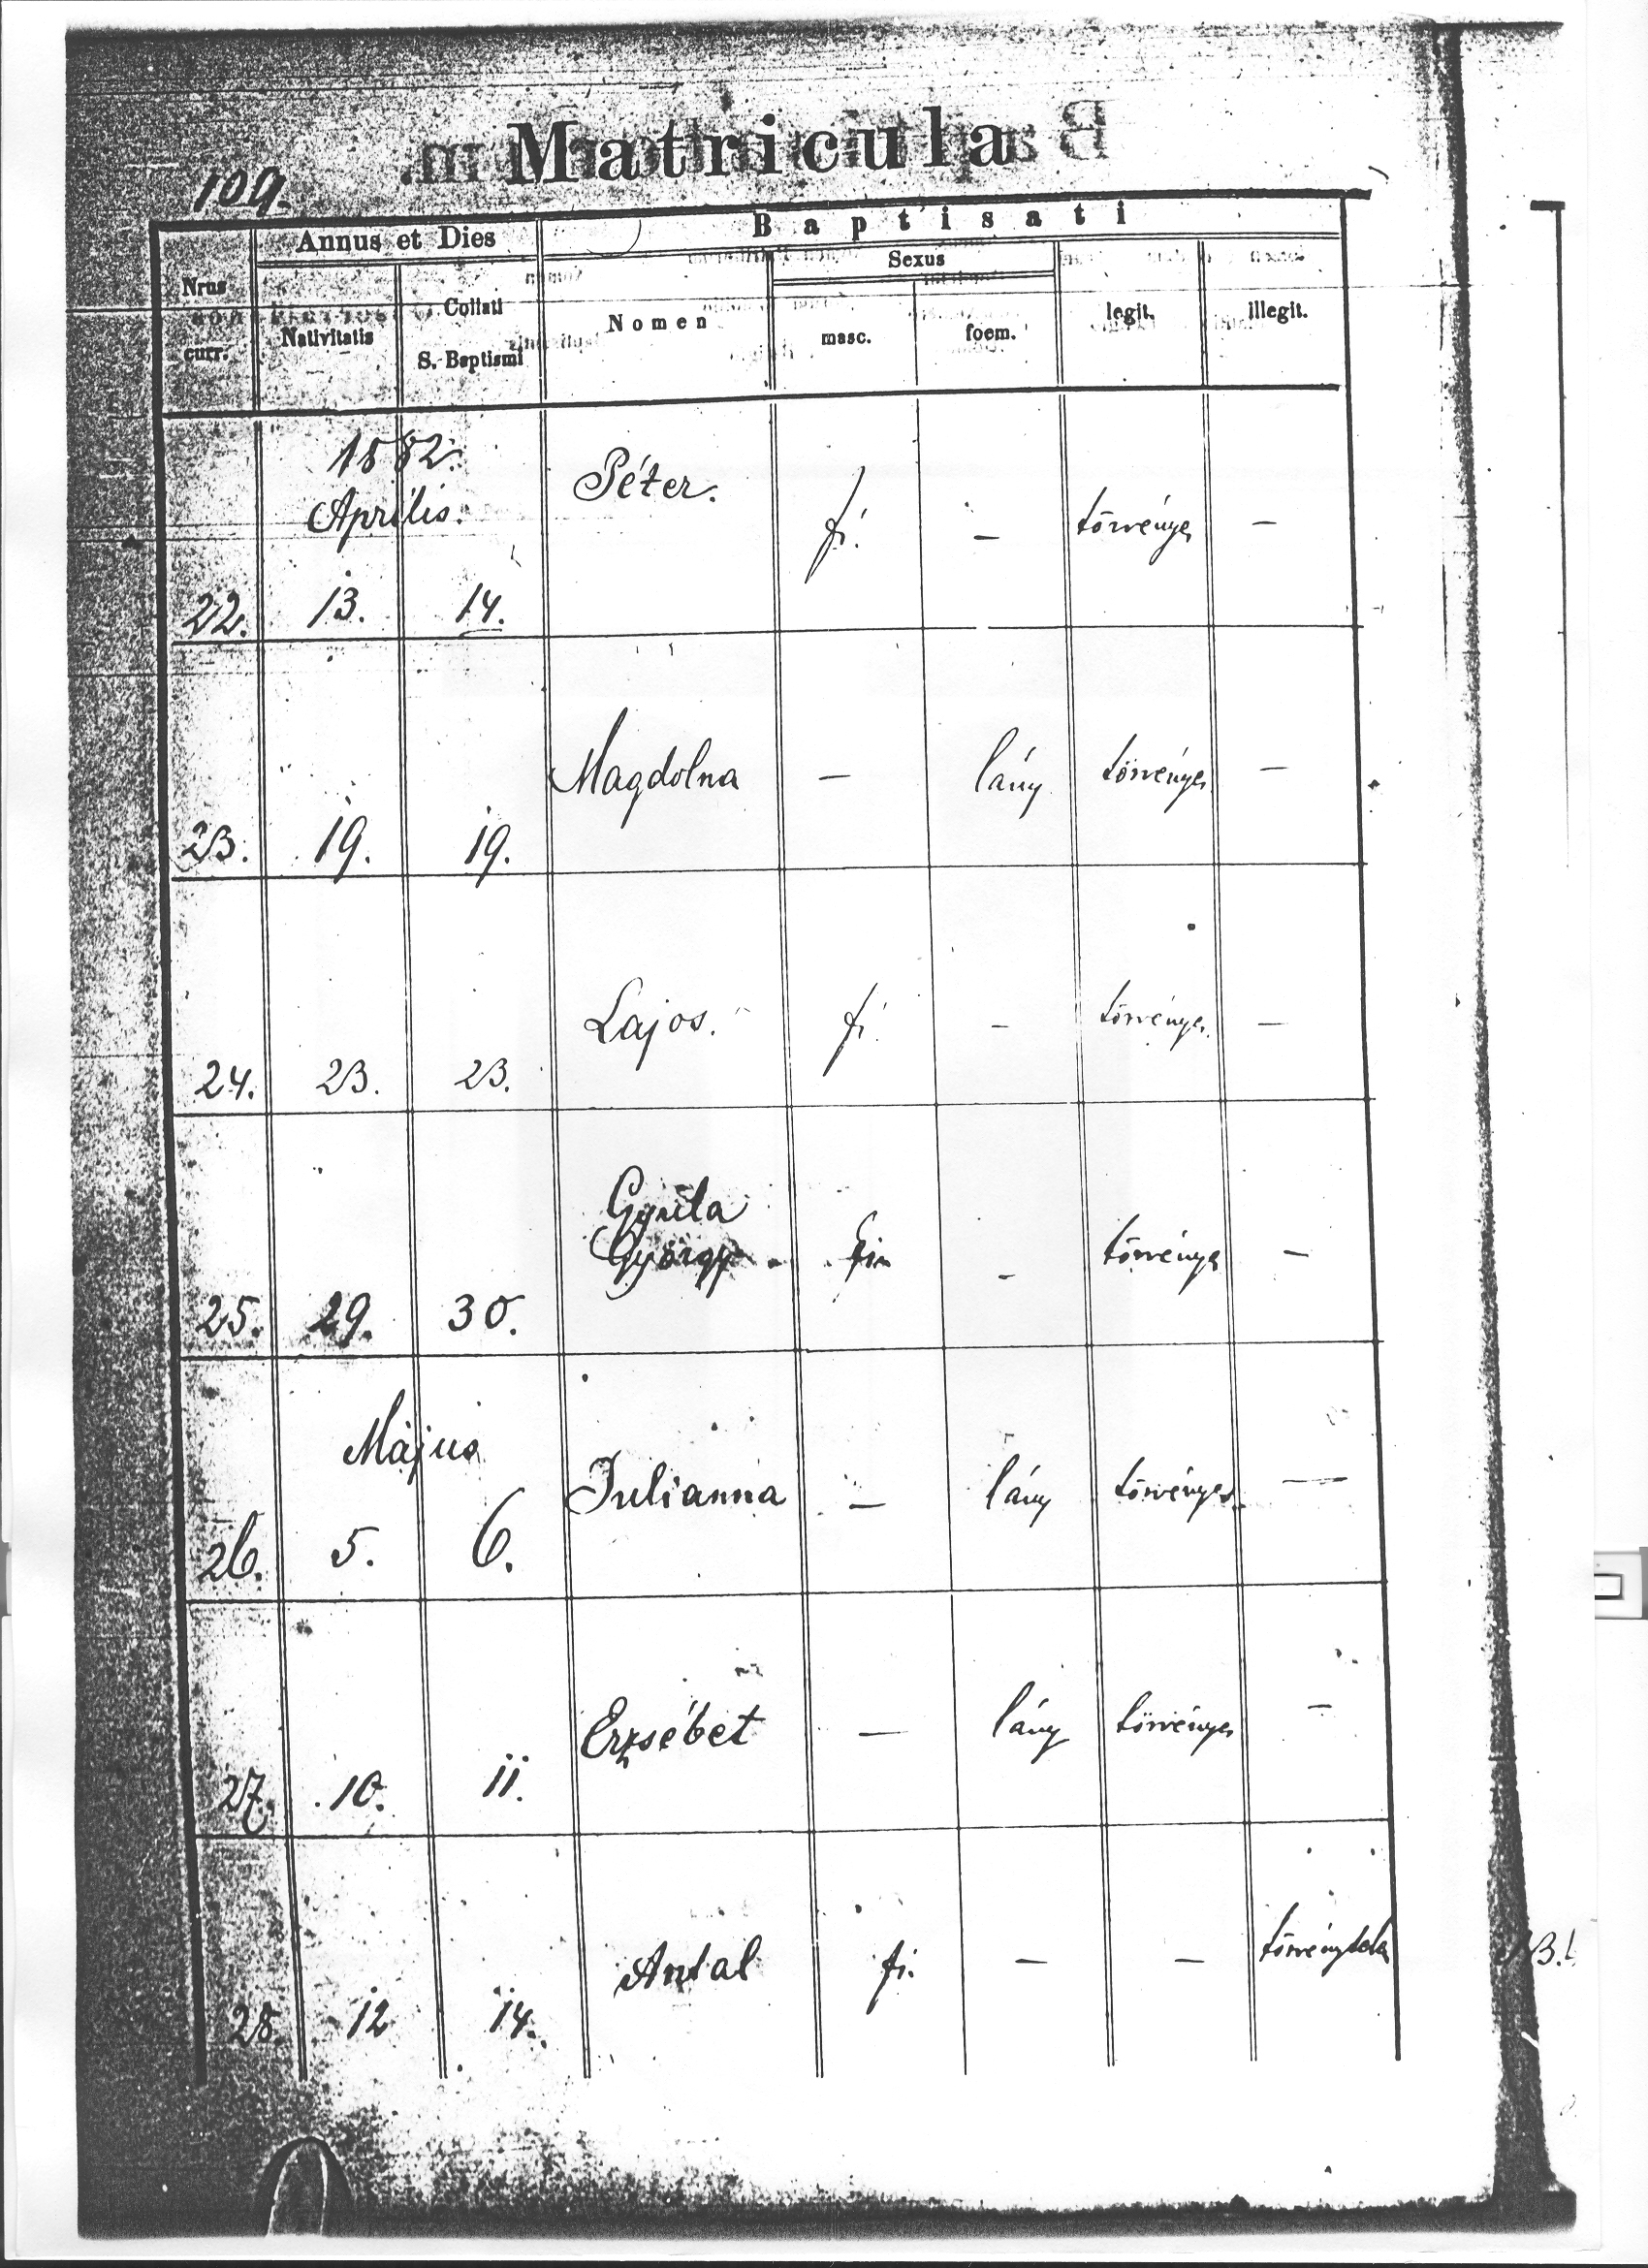 Matricula
109.
Annus et Dies
Baptisati
Nrus
curr.
Nativitatis
Collati
S. Baptismi
Nomen
Sexus
masc.
foem.
legit.
illegit.
1882.
Aprilis.
22. 13. 14. Péter. fi. – törvényes –
23. 19. 19. Magdolna – lány törvényes –
24. 23. 23. Lajos. fi. – törvényes –
25. 29. 30. Gyula
György fiu – törvényes –
Május
26. 5. 6. Julianna – lány törvényes –
27. 10. 11. Erzsébet – lány törvényes –
28. 12 14. Antal fi. – – törvénytelen